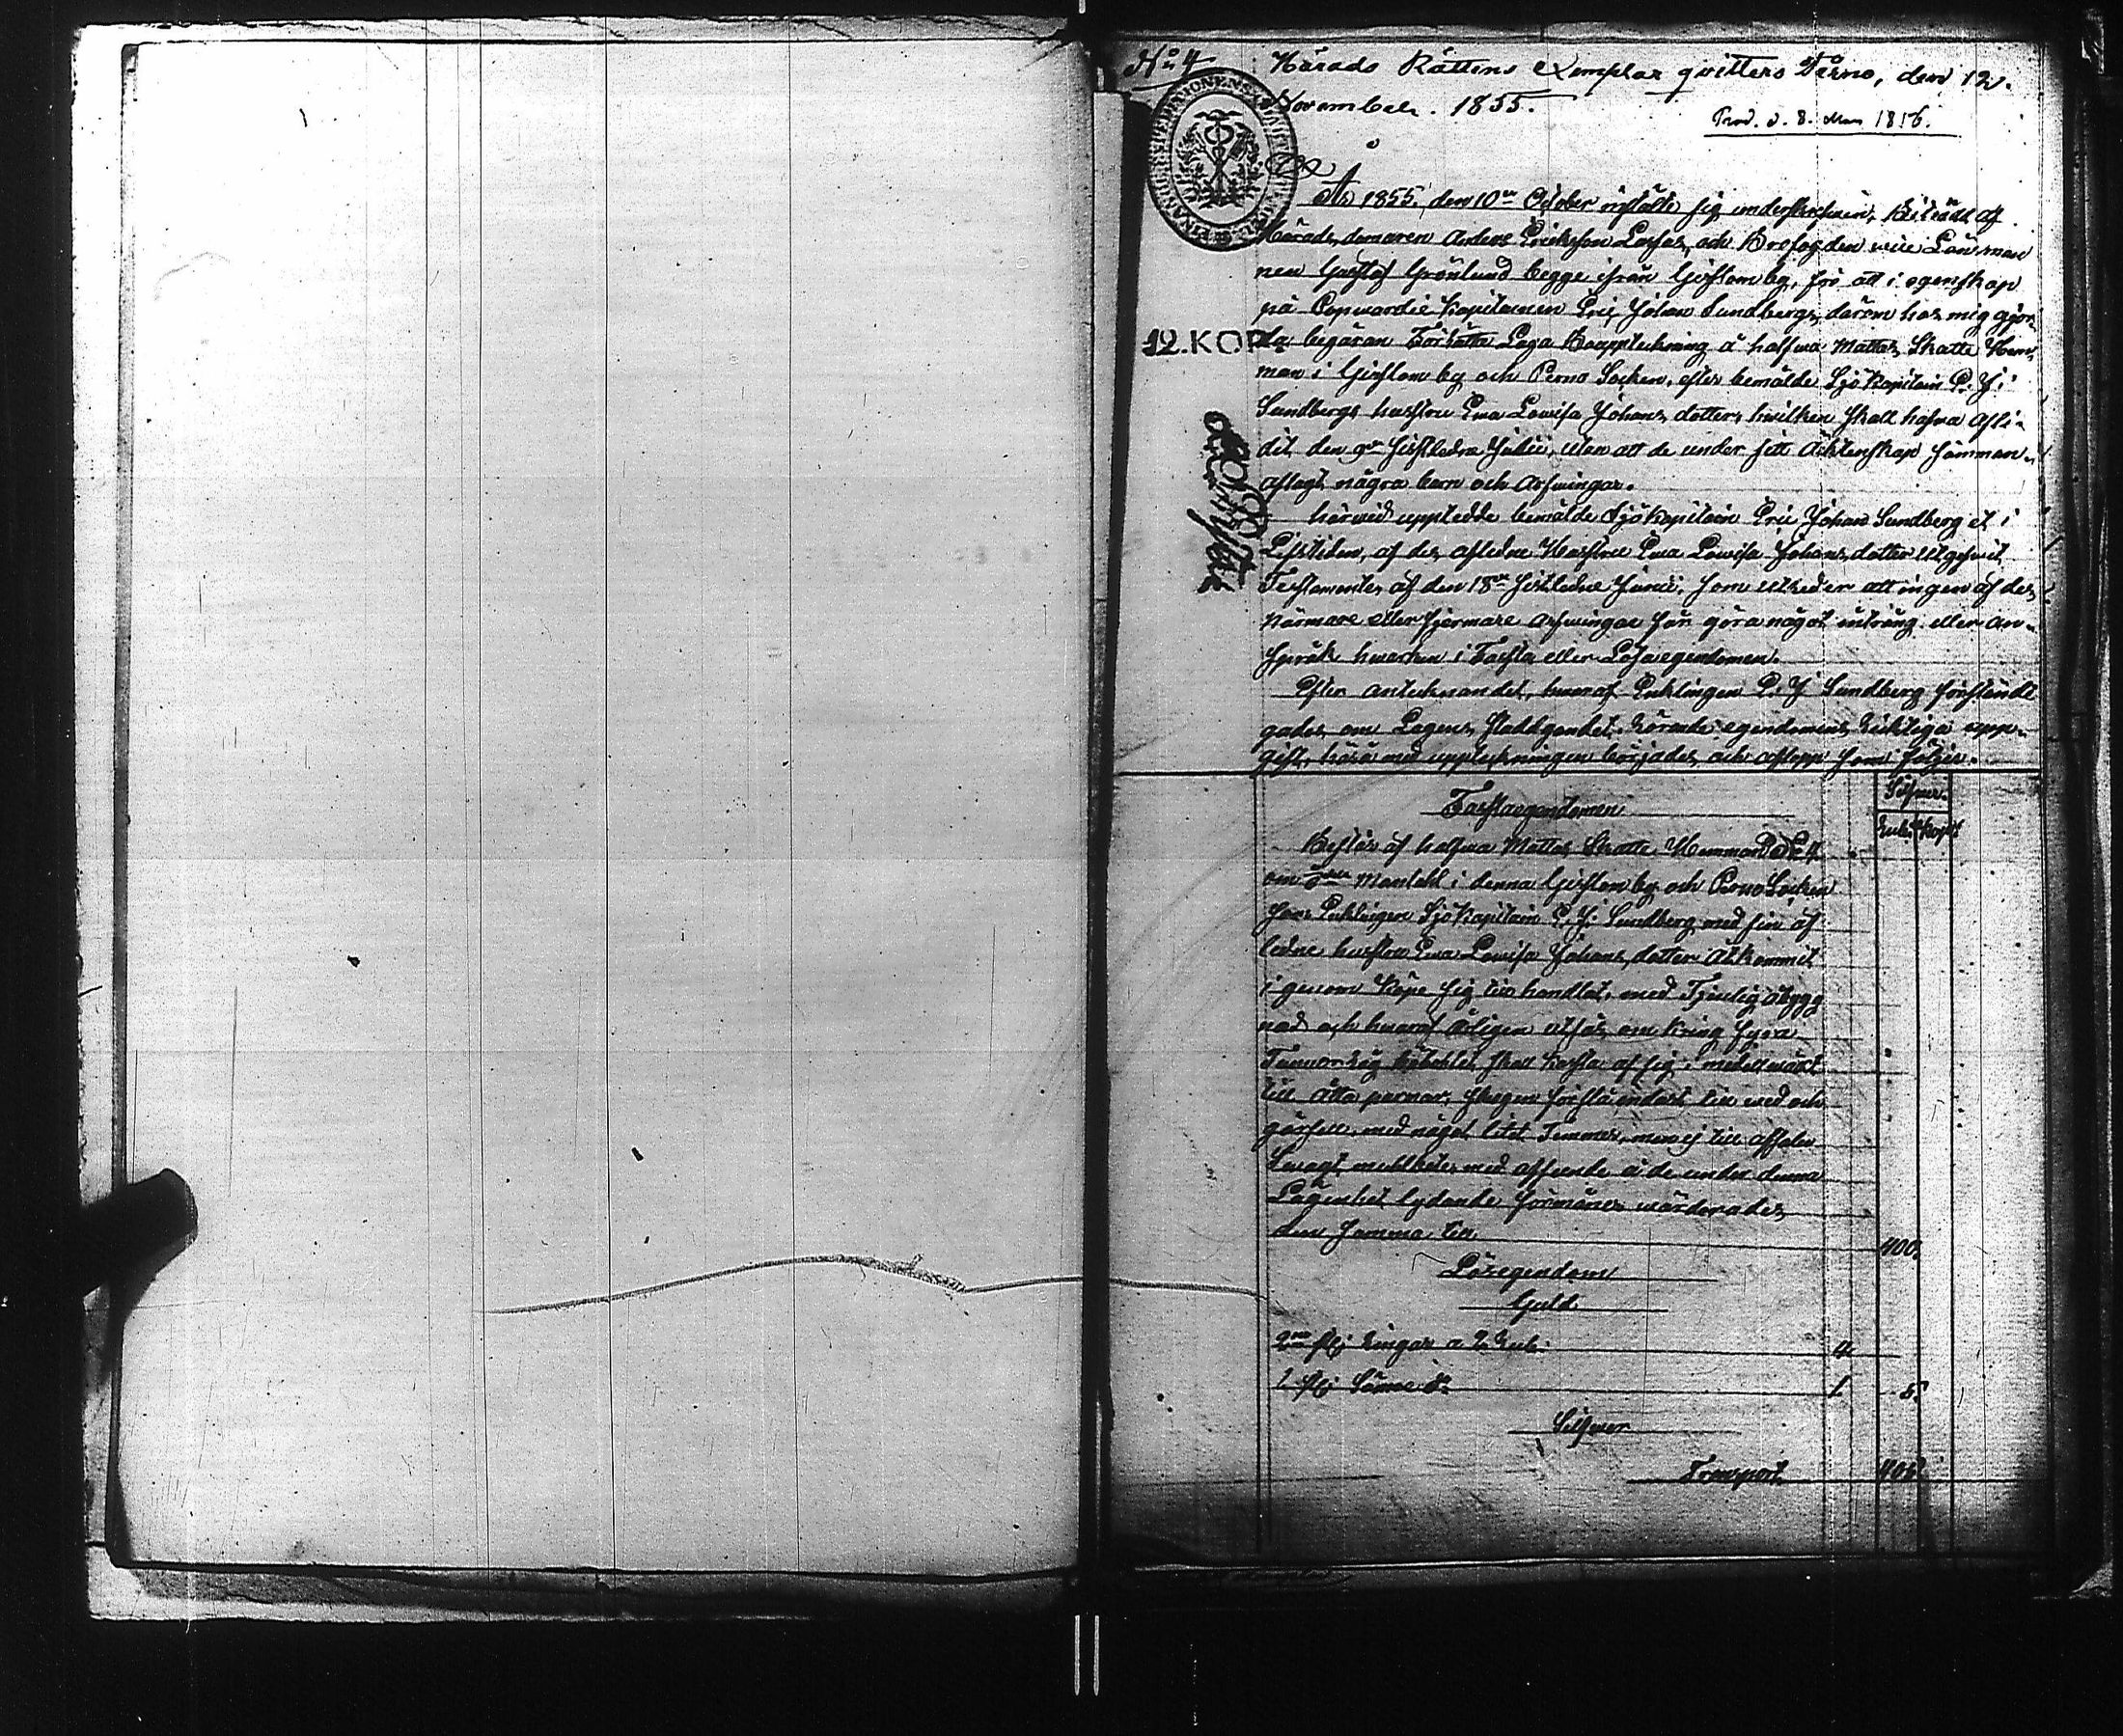 No 4
Härads Rättens Exemplar qvitters Perno, den 12.
November. 1855.
Prod. d. 8. Mars 1856.
12. KOP.
År 1855, den 10de October instälte sig undertecknad, biträdd af
Härads domaren Anders Ericksson Lassas, och Brofogden vice Länsman
nen Gustaf Grönlund begge ifrån Gislom by, för att i egenskap
på Copwardie Kapitainen Eric Johan Sundbergs, därom hos mig gjor-
da begäran Förrätta Laga Bouppteckning å halfwa Mattas Skatte Hem-
man i Gislom by och Perno Socken, efter bemälde Sjö Kapitain E. J:
Sundbergs hustru Ewa Lowisa Johans dotter, hwilken skall hafwa afli-
dit den 9de sistledne Julii, utan att de under sitt Äktenskap samman-
aflagt några barn och Arfwingar.
härwid uppteedde bemälde Sjö Kapitain Eric Johan Sundberg et i
Lifstiden, af des afledne Hustru Ewa Lowisa Johans dotter utgifwit
Testamente, af den 18de sistledne Junii, som utreder att ingen af des
närmare eller fjermare arfwingar får göra något intrång eller an-
språk hwarken i Fasta eller Lösa egendomen.
Efter antecknandet, hwaraf Enklingen E. J Sundberg förständi
gades om Lagens stadgandet, rörande egendomens riktiga upp-
gift, härå med uppteckningen börjades och aflopp som följer.
Silfwer.
Rub: Kop:
Fasta egendomen
Består af halfwa Mattas Skatte Hemman No 4
om Mantahl i denna Gislom by och Perno Socken
som Enklingen Sjö Kapitain E. J: Sundberg med sin af
ledne hustru Ewa Lowisa Johans dotter åtkommit
igenom Köpe sig till handlat, med Tjenlig åbygg
nad och hwaraf årligen utsås omkring fyra
Tunnor råg höbohlet skall kasta af sig i medelmåt
till åtta parmar, skogen förslå endast till wed och
gärsle, med något litet Timmer, men ej till afsalu
Swagt muhlbete, med afseende å de under denna
Lägenhet lydande förmåner wärderades
den samma till 400.
Lösegendom
Guld
2ne st: Ringar a 2 Rub: 4
1 st: Sämre do 1 5.
Silfwer
Transport 405.